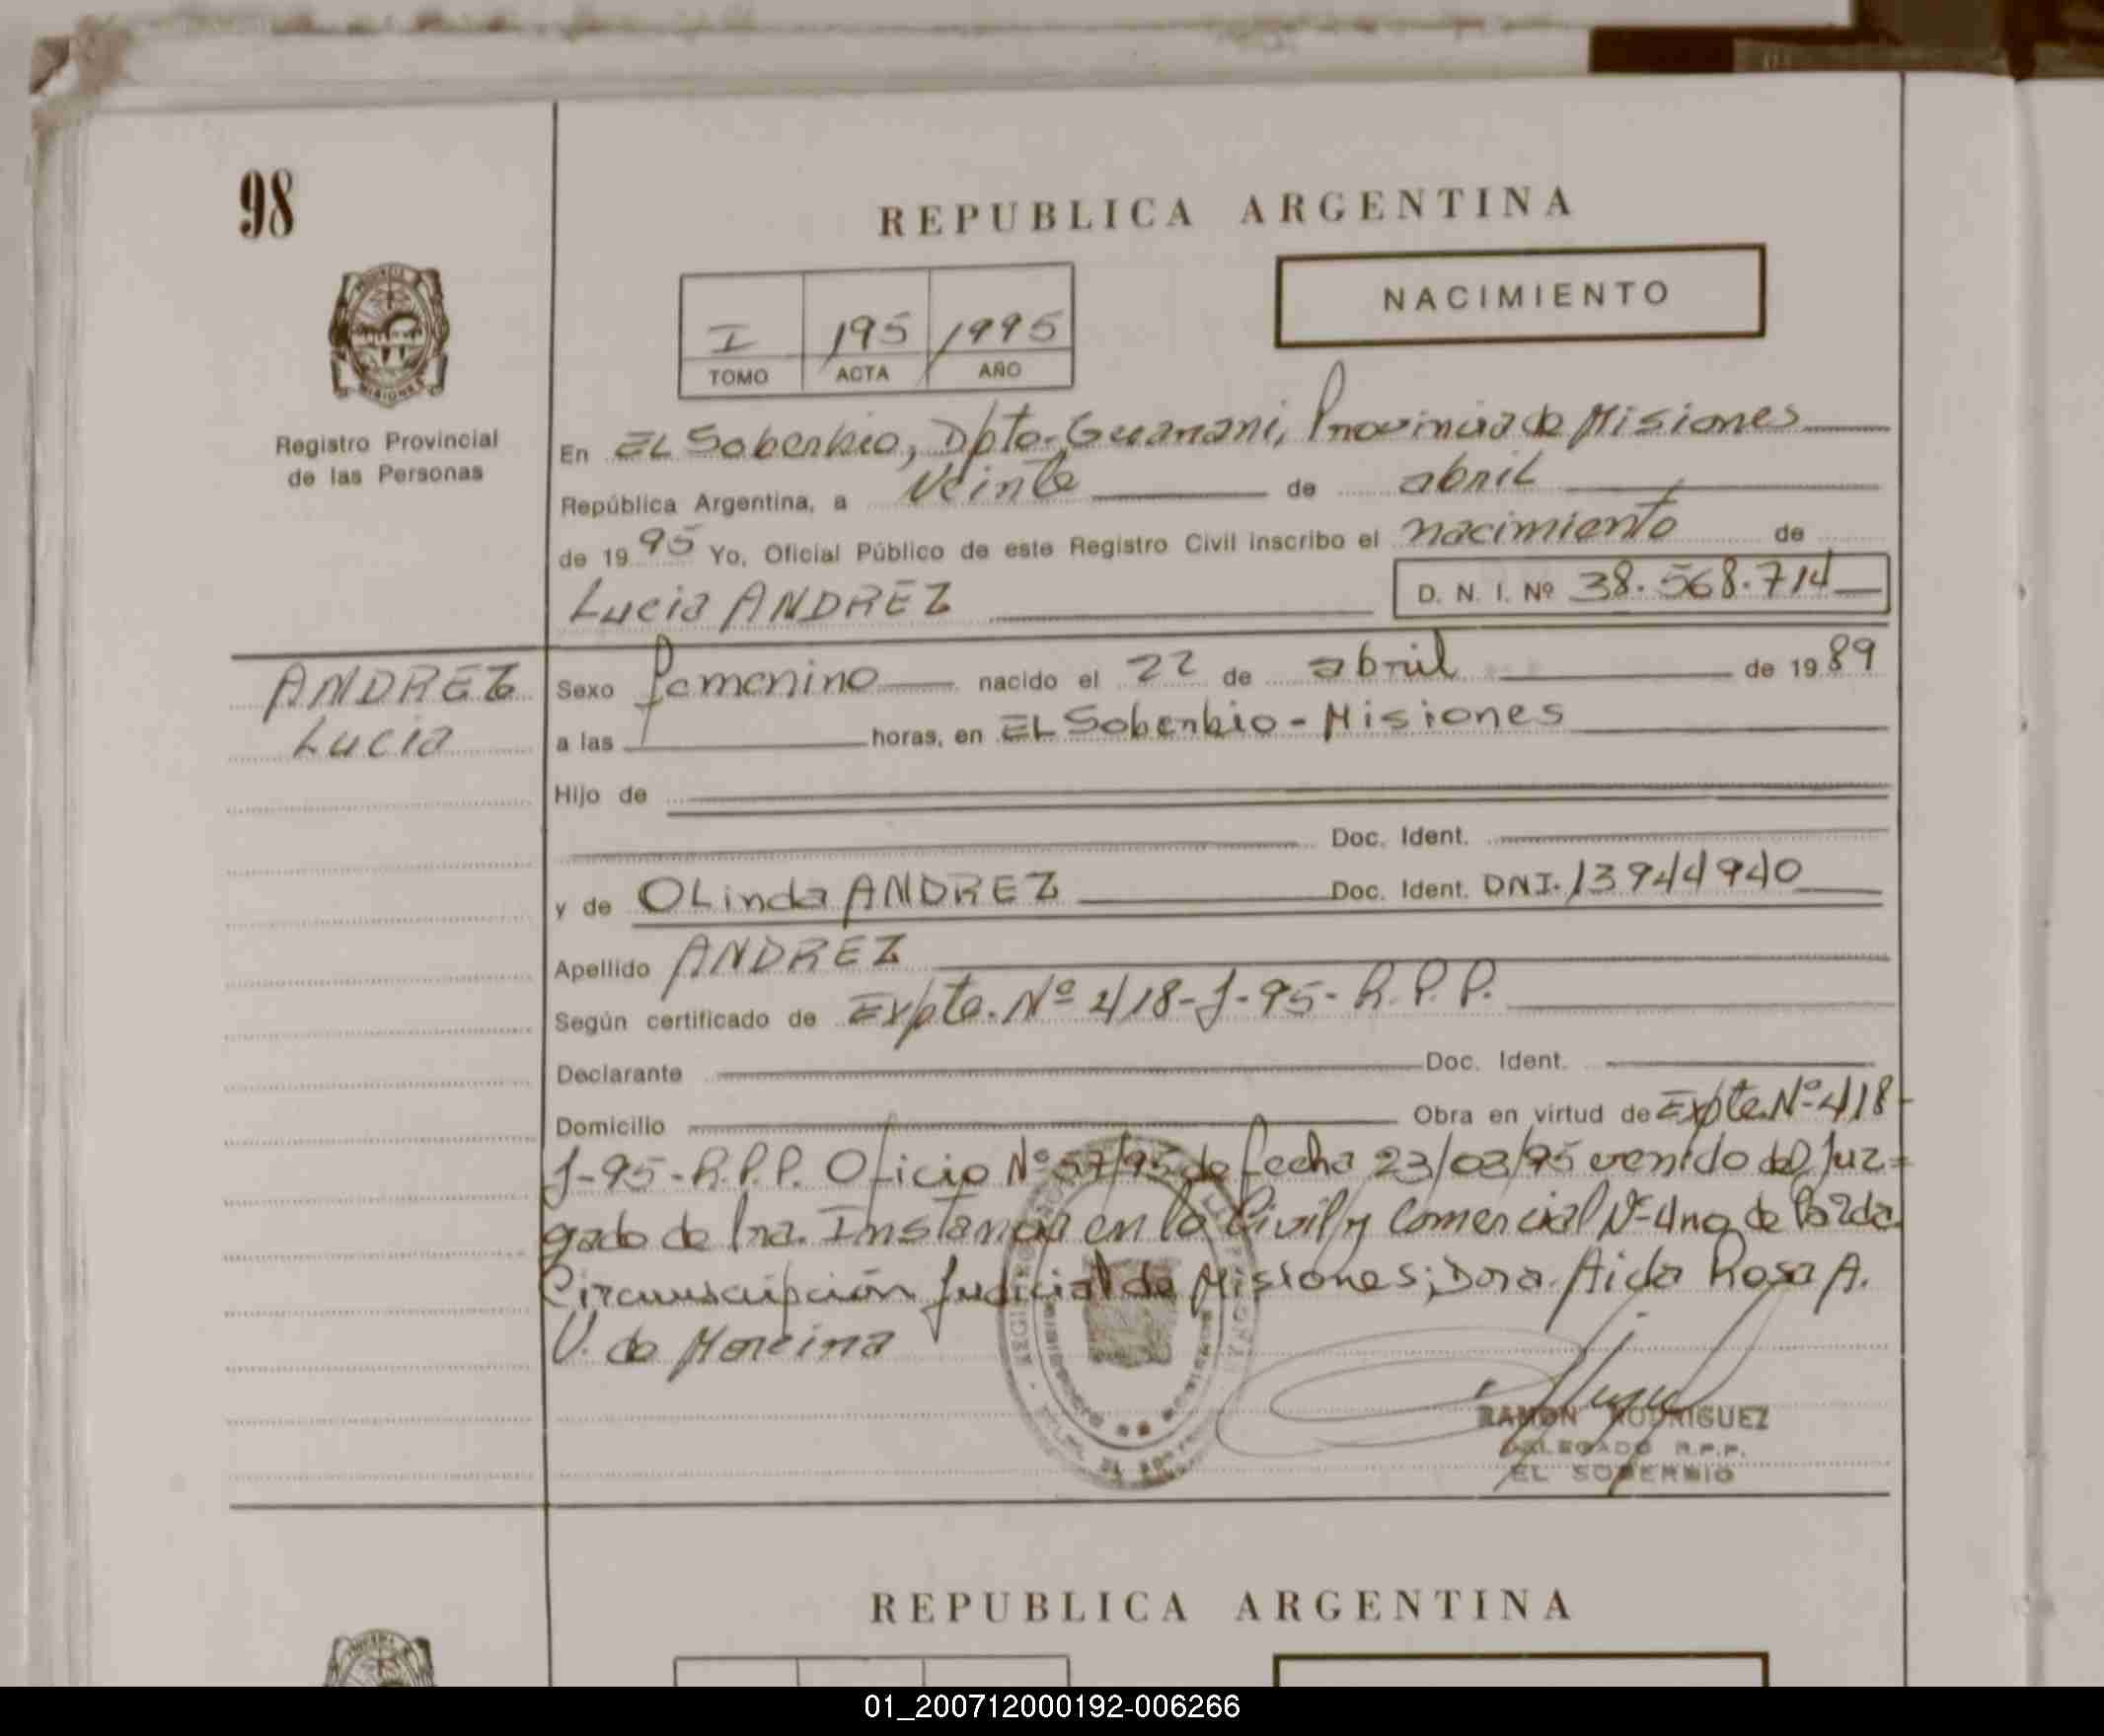 98
REPUBLICA ARGENTINA
NACIMIENTO
I 195 1995
TOMO ACTA AÑO
Registro Provincial
de las Personas
En EL Soberbio, Dpto. Guarani, Provincia de Misiones
República Argentina, a veinte de abril
de 19 95 Yo, Oficial Público de este Registro Civil inscribo el nacimiento de
Lucia ANDREZ D. N. I. Nº 38.568.714
ANDREZ
Lucia
Sexo femenino nacido el 22 de abril de 19 89
a las horas, en EL Soberbio - Misiones
Hijo de
Doc. Ident.
y de OLinda ANDREZ Doc. Ident. DNI. 13944940
Apellido ANDREZ
Según certificado de Expte. Nº 418-J-95-R.P.P.
Declarante Doc. Ident.
Domicilio Obra en virtud de Expte. Nº 418-
J-95-R.P.P. Oficio Nº 57/95 de fecha 23/03/95 venido del Juz=
gado de 1ra. Instancia en lo Civil y Comercial Nº 4 de
Circunscripción Judicial de Misiones; Dora. Aida Rosa A.
V. de Moreira
RAMON RODRIGUEZ
DELEGADO R.P.P.
EL SOBERBIO
REPUBLICA ARGENTINA
01_200712000192-006266